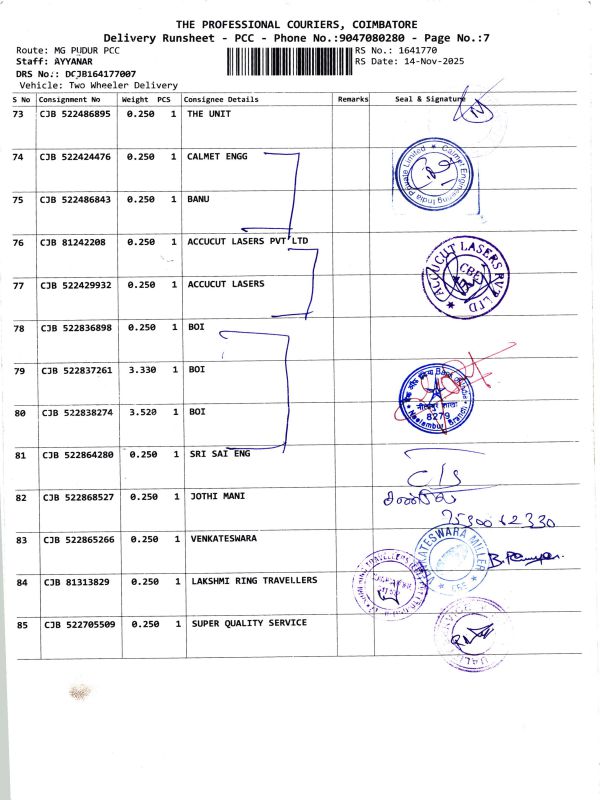 THE PROFESSIONAL COURIERS, COIMBATORE
Delivery Runsheet - PCC - Phone No.:9047080280 - Page No.:7
Route: MG PUDUR PCC
RS No.: 1641770
Staff: AYYANAR
RS Date: 14-Nov-2025
DRS No.: DCJB164177007
Vehicle: Two Wheeler Delivery
S No Consignment No Weight PCS Consignee Details Remarks Seal & Signature
73 CJB 522486895 0.250 1 THE UNIT
74 CJB 522424476 0.250 1 CALMET ENGG
Calmet Engineering India Private Limited
75 CJB 522486843 0.250 1 BANU
76 CJB 81242208 0.250 1 ACCUCUT LASERS PVT LTD
ACCUCUT LASERS PVT LTD
CBE
77 CJB 522429932 0.250 1 ACCUCUT LASERS
78 CJB 522836898 0.250 1 BOI
79 CJB 522837261 3.330 1 BOI
Neelambur Branch
8279
80 CJB 522838274 3.520 1 BOI
81 CJB 522864280 0.250 1 SRI SAI ENG
C/S
82 CJB 522868527 0.250 1 JOTHI MANI
83 CJB 522865266 0.250 1 VENKATESWARA
VENKATESWARA MILLER
CBE
84 CJB 81313829 0.250 1 LAKSHMI RING TRAVELLERS
85 CJB 522705509 0.250 1 SUPER QUALITY SERVICE